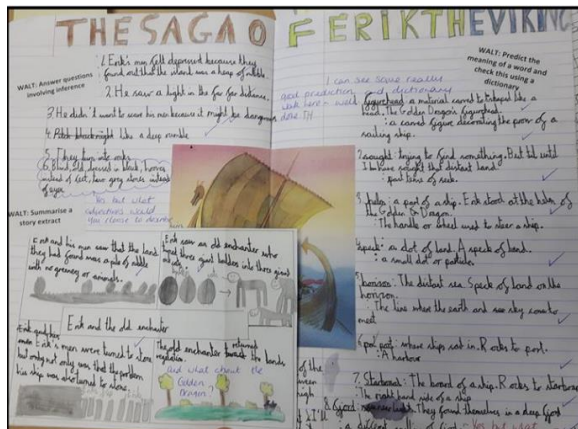 THE SAGA O
F ERIK THE VIKING
WALT: Answer questions
involving inference
1. Erik's men felt depressed because they
found out that the island was a heap of rubble.
2. He saw a light in the far far distance.
3. He didn't want to scare his men because it might be dangerous
4. Pitch-black night like a deep
5. They turn into rocks
6. Blind, old, dressed in black, hooves
instead of feet, have grey stones instead
of eyes.
Yes but what
adjectives would
you choose to describe
WALT: Summarise a
story extract
Erik and his men saw that the land
they had found was a pile of rubble
with no greenery or animals.
Erik saw an old enchanter who
turned three giant
into three giant
animals.
Erik and the old enchanter
Erik's men were turned to stone
but only not only was that the problem
his ship was also turned to stone.
The old enchanter returned
towards the lands
vegetation.
And what about the
Golden
Dragon?
WALT: Predict the
meaning of a word and
check this using a
dictionary
I can see some really
good prediction and dictionary
work here - well
done. TH
1. figurehead: a material carved to shaped like a
head. The Golden Dragon's figurehead.
: a carved figure decorating the prow of a
sailing ship.
2. sought: trying to find something. But
until
I have sought that distant land
past tense of seek.
3. helm: a part of a ship. Erik stood at the helm of
the Golden Dragon.
: The handle or wheel used to steer a ship.
4. speck: an dot of land. A speck of land.
: a small dot or particle.
5. horizon: The distant sea. Speck of land on the
horizon.
The line where the earth and sky seem to
meet
6. port: where ships set in. Rocks to port.
: A harbour
7. Starboard: The board of a ship. Rocks to starboard
The right hand side of a ship
8. fjord:
They found themselves in a deep fjord
Yes but what